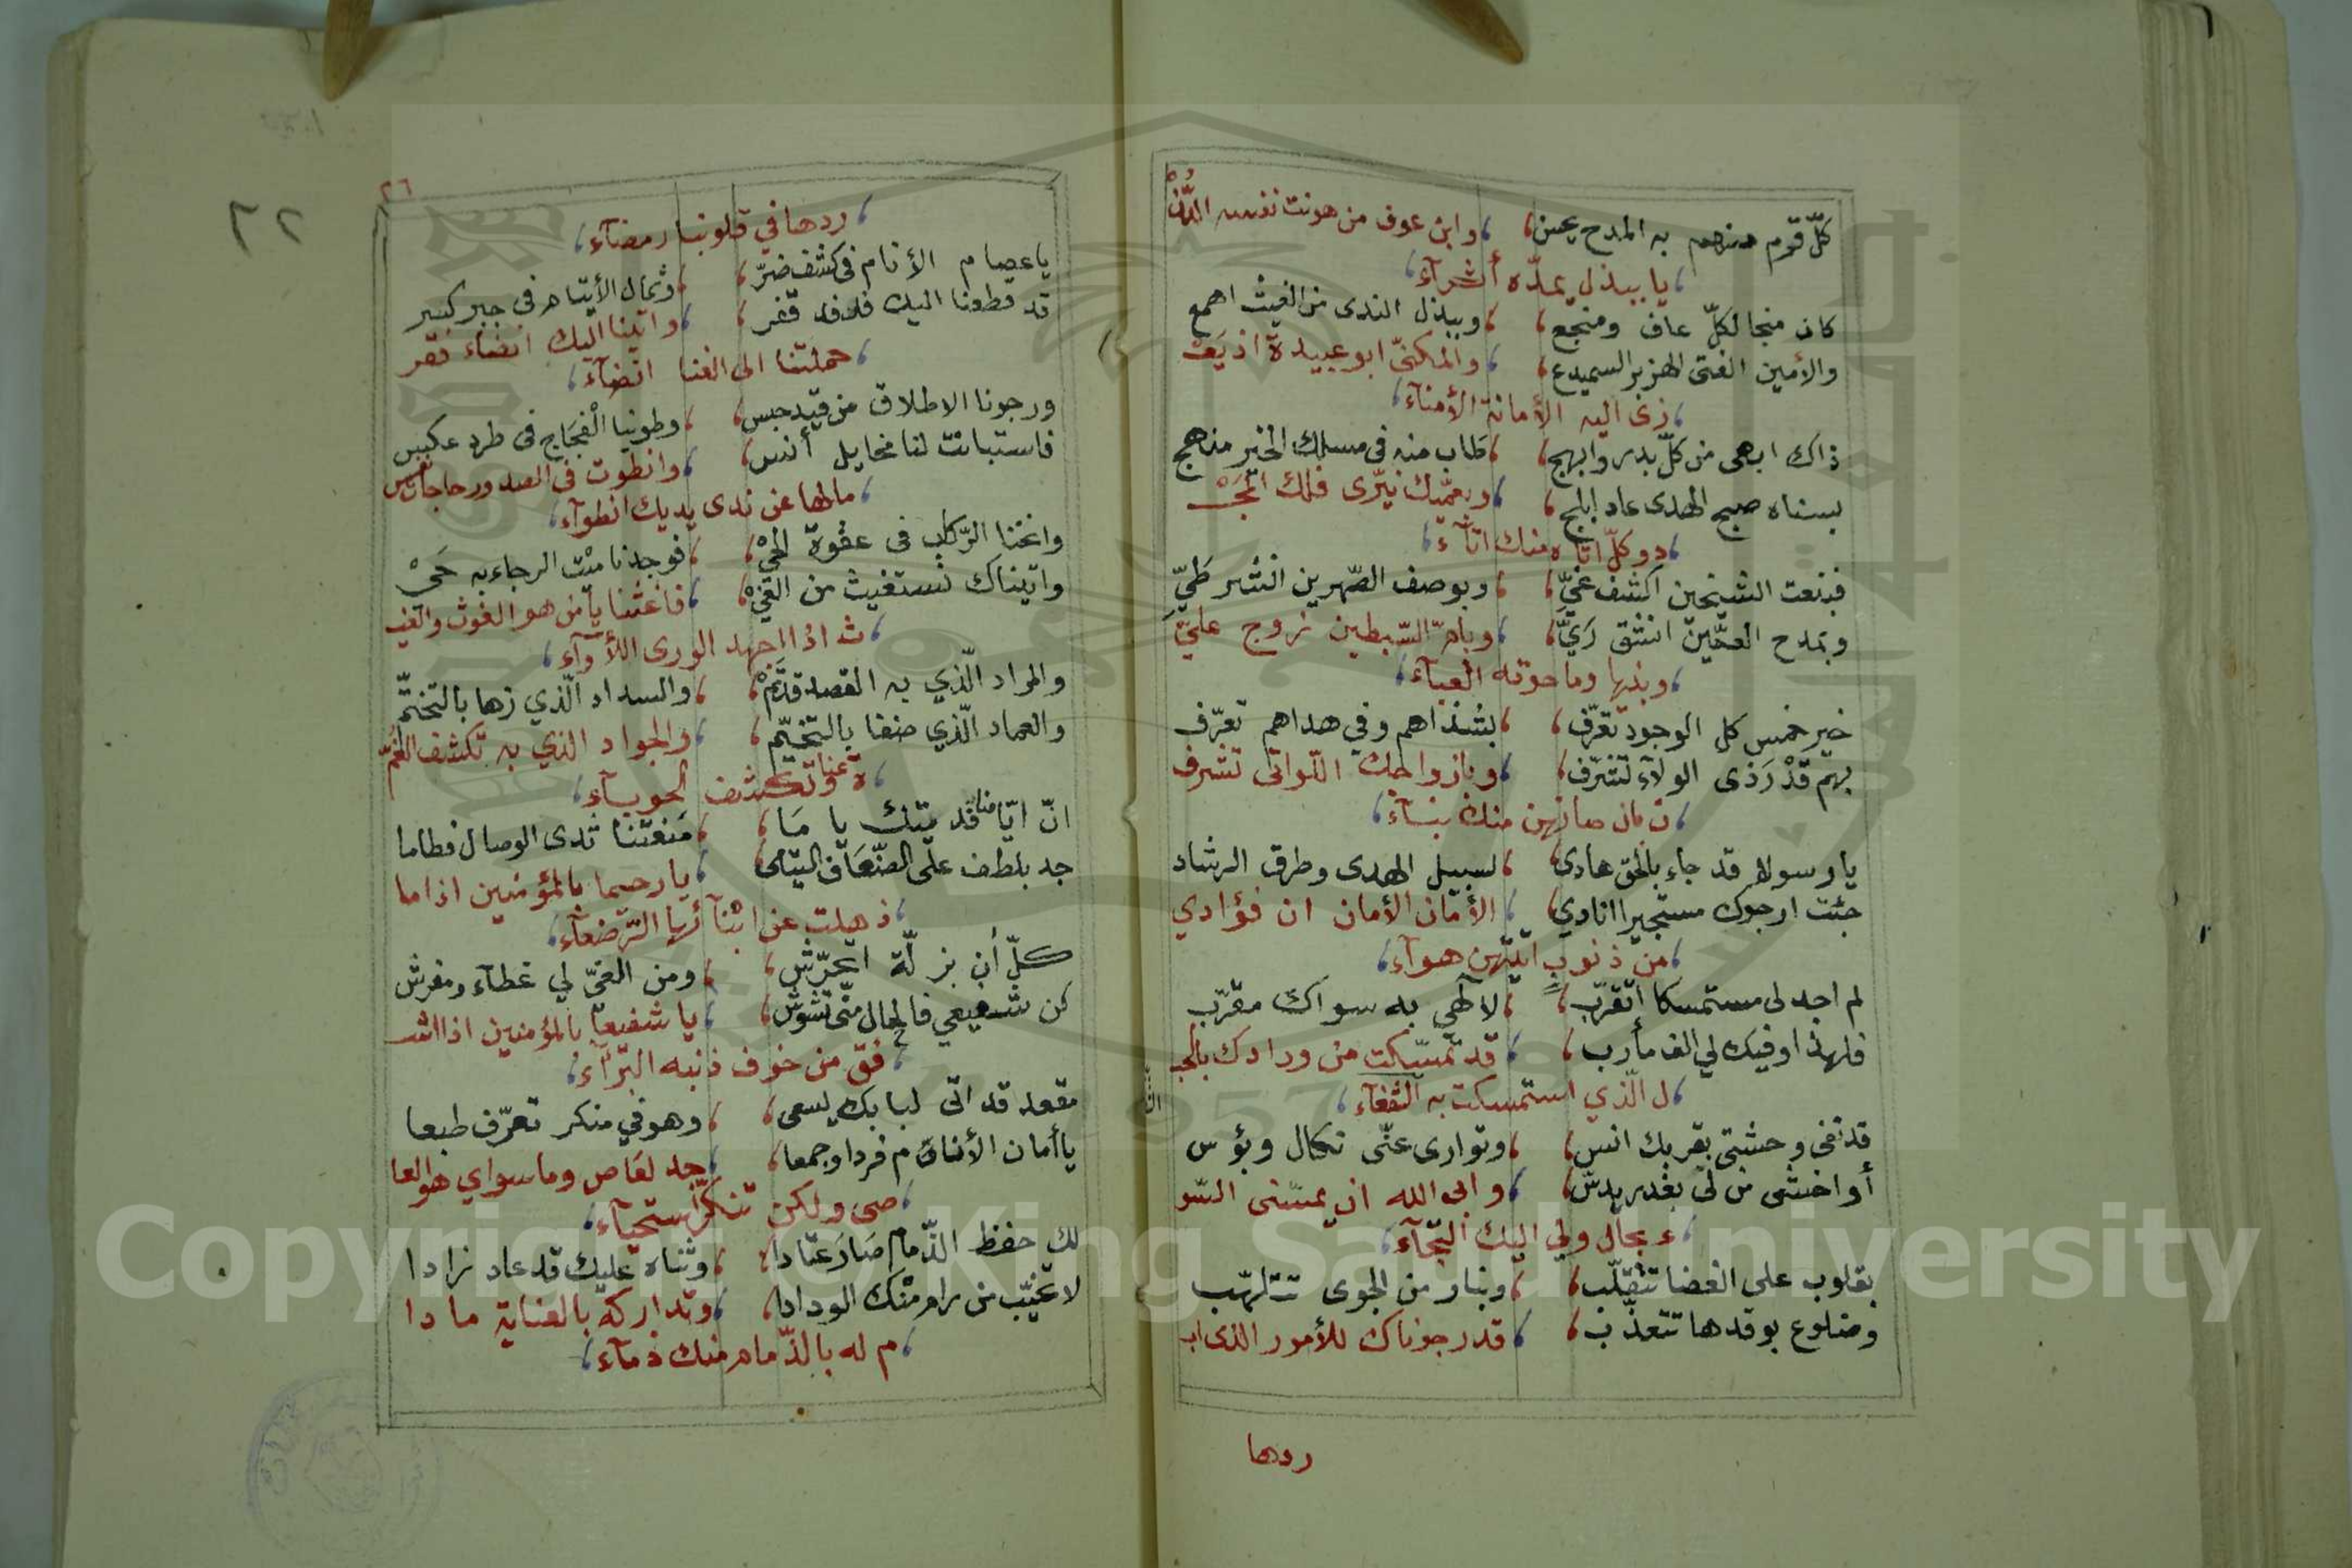 كلّ قرم منهم به المدح يحسن، وابن عوف من هونت نفسه الدّنْ
يا ببذل يمدّه أثرآء
كان منجا لكلّ عاف ومنجع، وببذل الندى من الغيث اهمع
والأمين الفتى الهزبر السميدع، والمكنّى ابو عبيدة اذ يَعْـ
ـزى اليه الأمانة الأمنآء
ذاك ابهى من كلّ بدر وابهج، طاب منه فى مسلك الخير منهج
بسناه صبح الهدى عاد ابلج، وبعمّيك نيّرى فلك المَجْـ
ـد وكلّ اتاه منك اتآء
فبنعت الشيخين اكشف غيّ، وبوصف الصّهرين انشر طيّ
وبمدح العمّين انشق ريّا، وبامّ السّبطين زوج عليّ
وبنيها وما حوته العبآء
خير خمس كل الوجود تعرّف، بشذاهم وفي هداهم تعرّف
بهم قدر ذى الولآء تشرّف، وبازواجك اللواتى تشرف
ن بان صانهن منك بنآء
يا رسولا قد جاء بالحق هادى، لسبيل الهدى وطرق الرشاد
جئت ارجوك مستجيرا انادي، الأمان الأمان ان فؤادي
من ذنوب اتيتهن هوآء
لم اجد لى مستمسكا اتقرّب، لالٓهي به سواك مقرّب
فلهذا وفيك لي الف مأرب، قد تمسّكت من ودادك بالحبـ
ـل الّذي استمسكت به الشفعآء
قد نفى وحشتى بقربك انس، وتوارى عنّى نكال وبؤس
أو اخشى من لى بغدر يدسّ، وابى الله ان يمسّنى السّو
ء بحال ولي اليك التجآء
بقلوب على الغضا تتقلّب، وبنار من الجوى تتلهّب
وضلوع بوقدها تتعذّب، قد رجوناك للأمور الذى اب
ردها
٢٦
٢٢
ردها في قلوبنا رمضآء
يا عصام الأنام فى كشف ضرّ، وثمال الأيتام فى جبر كسر
قد قطعنا اليك فدفد قفر، واتينا اليك انضاء فقر
حملتنا الى الغنا انضآء
ورجونا الاطلاق من قيد حبس، وطوينا الفجاج فى طرد عكس
فاستبانت لنا مخايل أنس، وانطوت فى الصدور حاجات نفس
ما لها عن ندى يديك انطوآء
وانخنا الرّكاب فى عقوة الحيْ، فوجدنا ميْت الرجاء به حَيْ
واتيناك نستغيث من الغيْ، فاغثنا يا من هو الغوث والغيـ
ـث اذا اجهد الورى اللأوآء
والمراد الّذي به القصد قد تمْ، والسداد الّذي زها بالتختّم
والعماد الّذي صفا بالتخيّم، والجواد الذي به تكشف الغمّـ
ـة عنا وتكشف الحوبآء
انّ ايّامنا قد يتنك يا مَا، مَنعتنا ثدى الوصال فطاما
جد بلطف على الضّعاف اليتامى، يا رحيما بالمؤمنين اذا ما
ذهلت عن ابنآئها الرّضعآء
كلّ أن بزلّة اتحرّش، ومن الغيّ لي غطآء ومفرش
كن شفيعي فالحال منّي تشوّش، يا شفيعا بالمؤمنين اذا اشـ
ـفق من خوف ذنبه البرآء
مقعد قد اتى لبابك يسعى، وهو في منكر تعرّف طبعا
يا أمان الأنام فردا وجمعا، جد لعاص وما سواي هو العا
صى ولكن تنكّرى استحيآء
لك حفظ الذّمام صَارَ عتادا، وثناه عليك قد عاد زادا
لا تخيّب من رام منك الودادا، وتداركه بالعناية ما دا
م له بالذّمام منك ذمآء
Copyright © King Saud University
1957